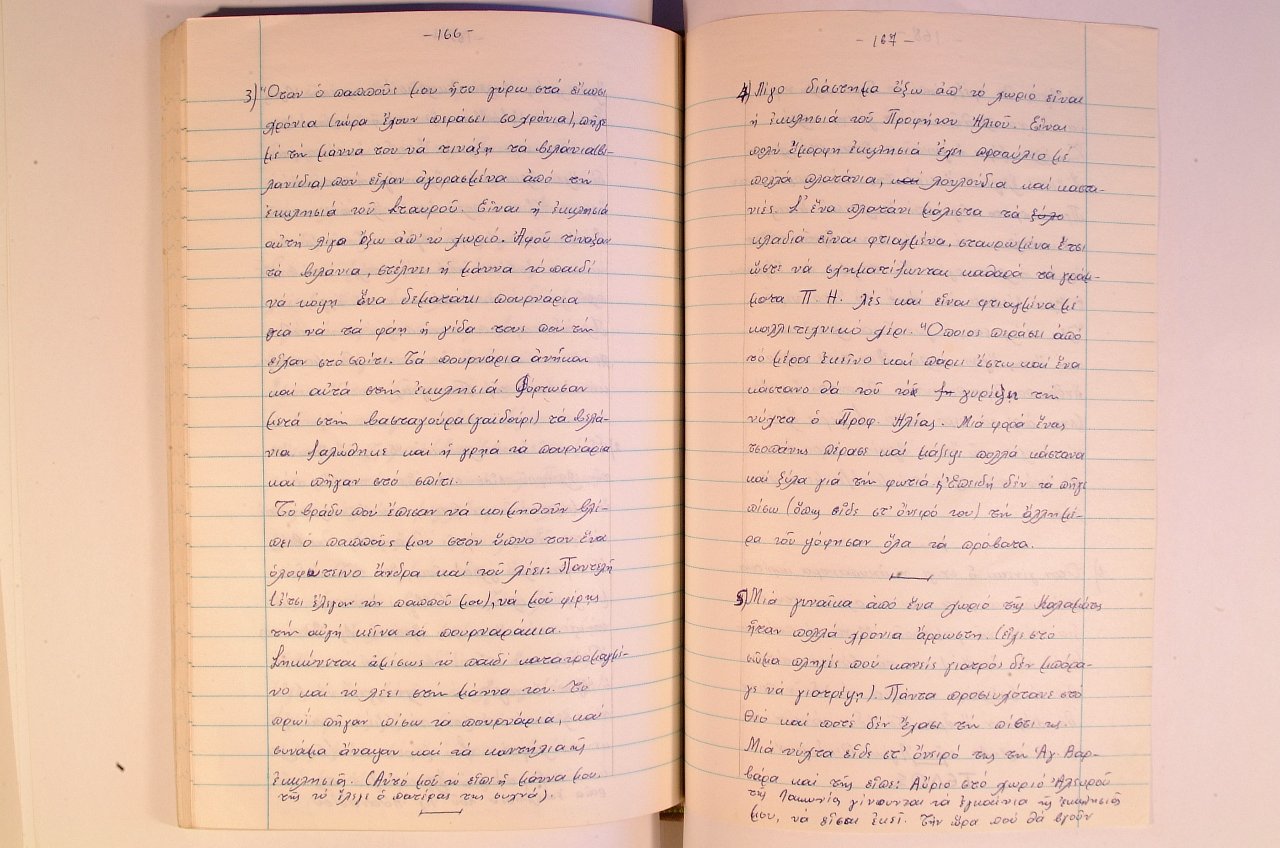 -166-
3) Ὅταν ὁ παπποῦς μου ἦτο γύρω στά εἴκοσι
χρόνια (τώρα ἔχουν περάσει 50 χρόνια), πῆγε
μέ τήν μάννα του νά τινάξη τά βελάνια (βε-
λανίδια) πού εἶχαν ἀγορασμένα ἀπό τήν
ἐκκλησιά τοῦ Σταυροῦ. Εἶναι ἡ ἐκκλησιά
αὐτή λίγο ἔξω ἀπ' τό χωριό. Ἀφοῦ τίναξαν
τά βελάνια, στέλνει ἡ μάννα τό παιδί
νά κοψη ἕνα δεματάκι πουρνάρια
γιά νά τα φάη ἡ γίδα τους πού τήν
εἶχαν στό σπίτι. Τά πουρνάρια ἀνῆκαν
καί αὐτά στήν ἐκκλησιά. Φόρτωσαν
μετά στήν βασταγούρα (γαϊδούρι) τά βελά-
νια, ζαλώθηκε καί ἡ γρηά τά πουρνάρια
καί πῆγαν στό σπίτι.
Τό βράδυ πού ἔπεσαν νά κοιμηθοῦν βλέ-
πει ὁ παπποῦς μου στόν ὕπνο του ἕνα
ὁλοφώτεινο ἄνδρα καί τοῦ λέει: Παντελῆ
(ἔτσι ἔλεγαν τόν παπποῦ μου), νά μοῦ φέρης
τήν αὐγή κεῖνα τά πουρναράκια.
Σηκώνεται ἀμέσως τό παιδί κατατρομαγμέ-
νο καί τό λέει στήν μάννα του. Τό
πρωί πῆγαν πίσω τα πουρνάρια, καί
συνάμα ἄναψαν καί τά καντήλια τῆς
ἐκκλησιᾶς. (Αὐτό μοῦ τό εἶπε ἡ μάννα μου.
τῆς τό ἔλεγε ὁ πατέρας της συχνά).
-167-
4) Λίγο διάστημα ἔξω ἀπ' τό χωριό εἶναι
ἡ ἐκκλησιά τοῦ Προφήτου Ηλιοῦ. Εἶναι
πολύ ὄμορφη ἐκκλησιά ἔχει προαύλιο μέ
πολλά πλατάνια, καί λουλούδια καί καστα-
νιές. Σ' ἕνα πλατάνι μάλιστα τά ξύλα
κλαδιά εἶναι φτιαγμένα, σταυρωμένα ἔτσι
ὥστε νά σχηματίζωνται καθαρά τά γράμ-
ματα Π. Η. λές καί εἶναι φτιαγμένα μέ
καλλιτεχνικό χέρι. Ὅποιος περάσει ἀπό
τό μέρος ἐκεῖνο καί πάρει ἔστω καί ἕνα
κάστανο θά τοῦ τό γυρέψει τήν
νύχτα ὁ Προφ. Ηλίας. Μιά φορά ἕνας
τσοπάνης πέρασε καί μάζεψε πολλά κάστανα
καί ξύλα γιά τήν φωτιά. Ἐπειδή δέν τά πῆγε
πίσω (ὅπως εἶδε στ' ὄνειρό του) τήν ἄλλη μέ-
ρα τοῦ ψόφησαν ὅλα τά πρόβατα.
5) Μιά γυναῖκα ἀπό ἕνα χωριό τῆς Καλαμάτας
ἦταν πολλά χρόνια ἄρρωστη. (εἶχε στό
σῶμα πληγές πού κανείς γιατρός δέν μπόρα-
γε νά γιατρέψη). Πάντα προσευχότανε στό
Θεό καί ποτέ δέν ἔχασε τήν πίστι της.
Μιά νύχτα εἶδε στ' ὄνειρό της τήν Ἁγ. Βαρ-
βάρα καί τῆς εἶπε: Αὔριο στό χωριό Ἀλευροῦ
τῆς Λακωνίας γίνουνται τά ἐγκαίνια τῆς ἐκκλησιᾶς
μου, νά εἶσαι ἐκεῖ. Τήν ὥρα πού θά βγοῦν